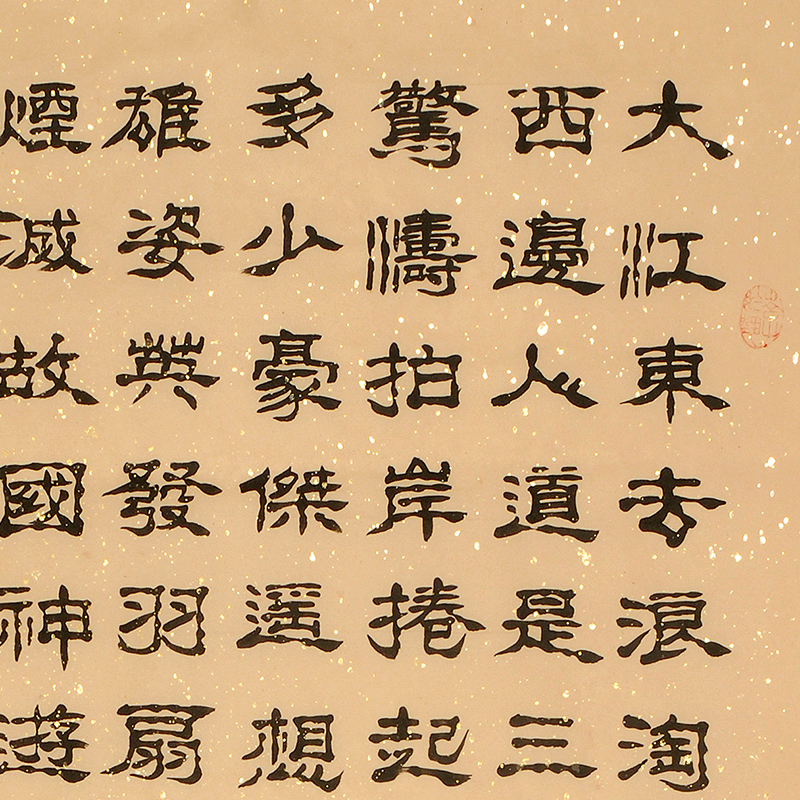 大江東去浪淘
西邊人道是三
驚濤拍岸捲起
多少豪傑遥想
雄姿英發羽扇
煙滅故國神遊